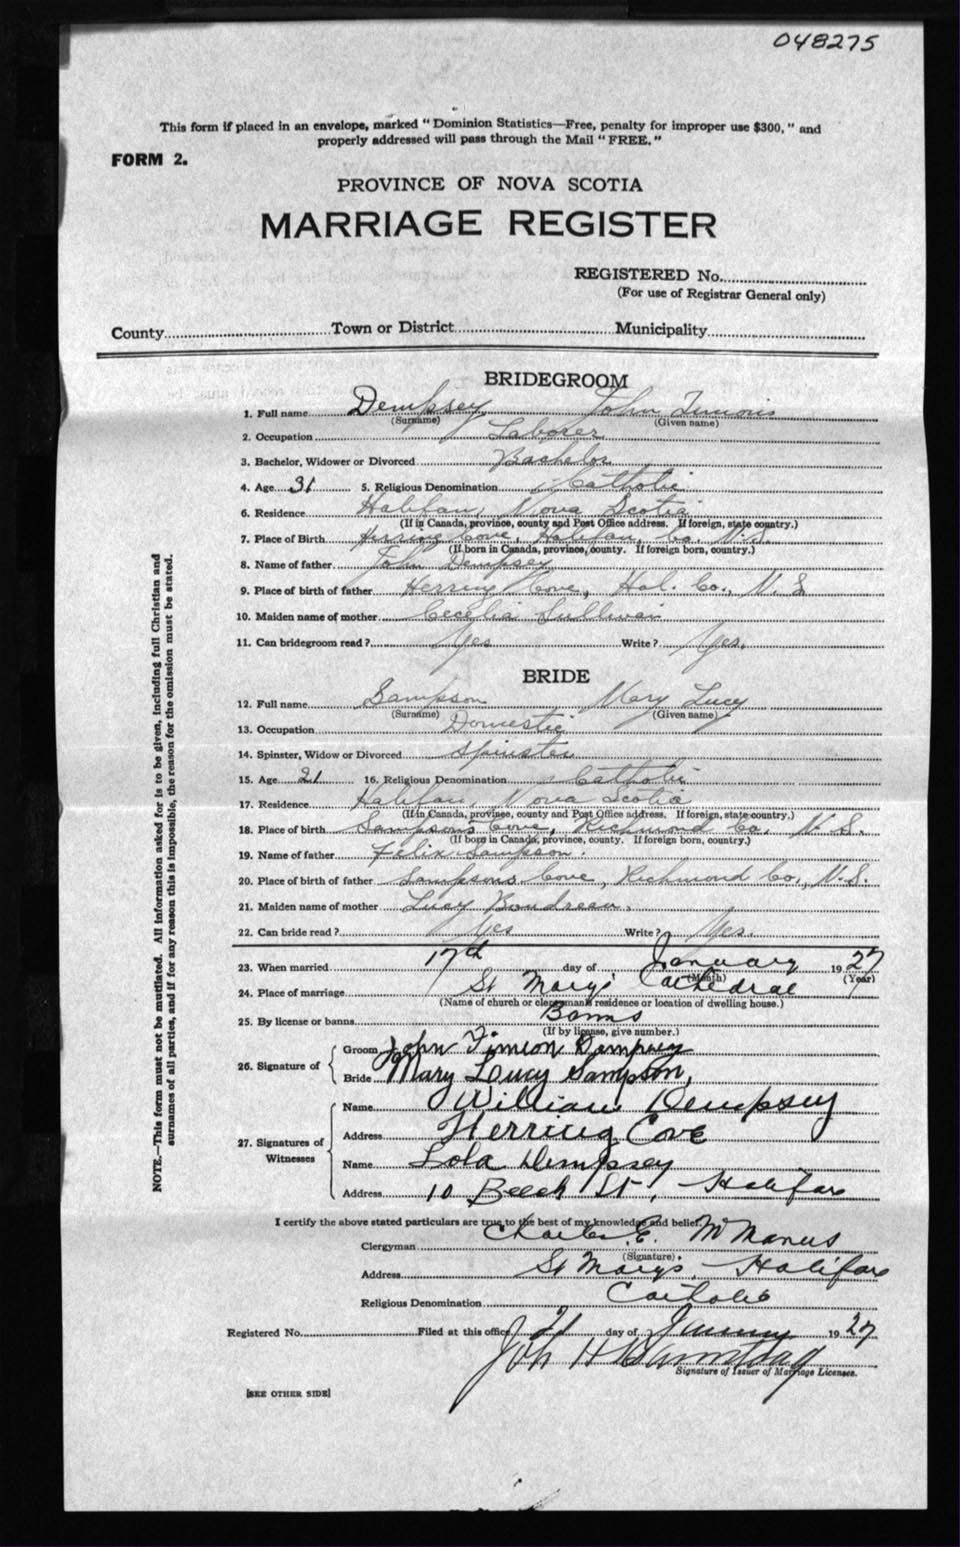 048275
This form if placed in an envelope, marked "Dominion Statistics—Free, penalty for improper use $300," and
properly addressed will pass through the Mail "FREE."
FORM 2.
PROVINCE OF NOVA SCOTIA
MARRIAGE REGISTER
REGISTERED No.
(For use of Registrar General only)
County Town or District Municipality
BRIDEGROOM
1. Full name Dempsey John
(Surname) (Given name)
2. Occupation Laborer
3. Bachelor, Widower or Divorced Bachelor
4. Age 31 5. Religious Denomination Catholic
6. Residence Halifax, Nova Scotia
(If in Canada, province, county and Post Office address. If foreign, state country.)
7. Place of Birth Herring Cove, Halifax, Co. N.S.
(If born in Canada, province, county. If foreign born, country.)
8. Name of father John Dempsey
9. Place of birth of father Herring Cove, Hal. Co., N.S
10. Maiden name of mother Cecelia Sullivan
11. Can bridegroom read? Yes Write? Yes.
BRIDE
12. Full name Sampson Mary Lucy
(Surname) (Given name)
13. Occupation Domestic
14. Spinster, Widow or Divorced Spinster
15. Age 21 16. Religious Denomination Catholic
17. Residence Halifax, Nova Scotia
(If in Canada, province, county and Post Office address. If foreign, state country.)
18. Place of birth Sampsons Cove, Richmond Co. N.S.
(If born in Canada, province, county. If foreign born, country.)
19. Name of father Felix Sampson.
20. Place of birth of father Sampsons Cove, Richmond Co., N.S.
21. Maiden name of mother Lucy Boudreau.
22. Can bride read? Yes Write? Yes.
23. When married 17th day of January 1927
(Month) (Year)
24. Place of marriage St Mary's Cathedral
(Name of church or clergyman's residence or location of dwelling house.)
25. By license or banns Banns
(If by license, give number.)
26. Signature of Groom John Dempsey
Bride Mary Lucy Sampson,
27. Signatures of Witnesses Name William Dempsey
Address Herring Cove
Name Lola Dempsey
Address 10 Beech St, Halifax
I certify the above stated particulars are true to the best of my knowledge and belief.
Clergyman Charles E. McManus
(Signature)
Address St Marys, Halifax
Religious Denomination Catholic
Registered No. Filed at this office 21 day of January 1927
John H
Signature of Issuer of Marriage Licenses.
[SEE OTHER SIDE]
NOTE.—This form must not be mutilated. All information asked for is to be given, including full Christian and
surnames of all parties, and if for any reason this is impossible, the reason for the omission must be stated.